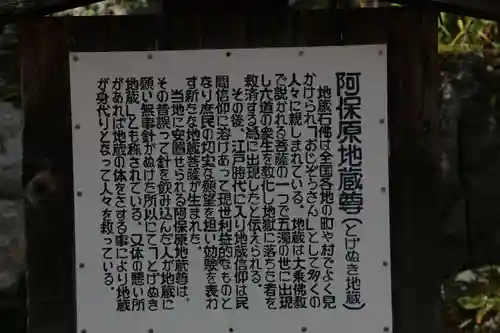 阿保原地蔵尊（とげぬき地蔵）
地蔵石佛は全国各地の町や村でよく見
かけられ「おじぞうさん」として多くの
人々に親しまれている。地蔵は大乗佛教
で説かれる菩薩の一つで五濁の世に出現
し六道の衆生を教化し地獄に落ちた者を
救済する為に出現したと伝えられる。
その後、江戸時代に入り地蔵信仰は民
間信仰に溶けあって現世利益的なものと
なり庶民の切実な願望を担い効験を表わ
す新たな地蔵菩薩が生まれた。
当地に安置せられる阿保原地蔵尊は、
その昔誤って針を飲み込んだ人が地蔵に
願い無事針がぬけた所以にて「とげぬき
地蔵」とも称されている。又体の悪い所
があれば地蔵の体をさする事により地蔵
が身代りとなって人々を救っている。